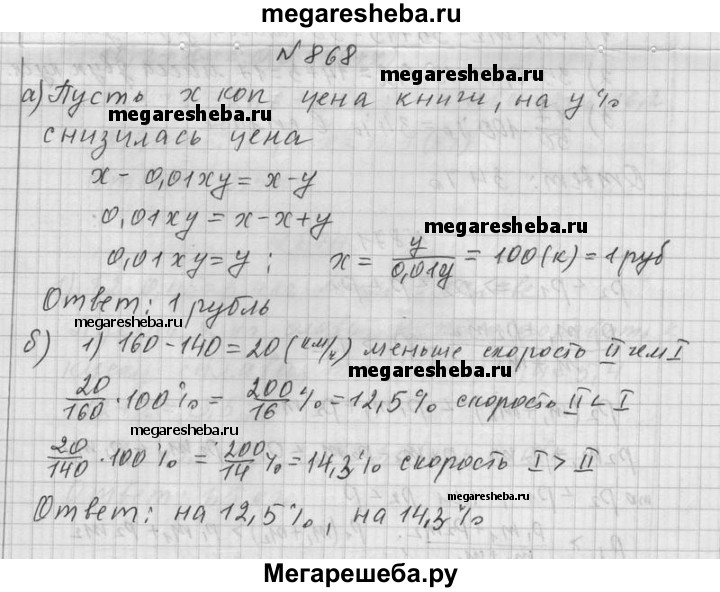 megaresheba.ru
№868
megaresheba.ru
а) Пусть x коп цена книги, на y%
megaresheba.ru
снизилась цена
x - 0,01xy = x - y
0,01xy = x - x + y
megaresheba.ru
0,01xy = y ; x = y/0,01y = 100(к) = 1 руб
Ответ: 1 рубль
megaresheba.ru
б) 1) 160 - 140 = 20 (км/ч) меньше скорость II чем I
20/160 · 100% = 200/16 % = 12,5% скорость II < I
megaresheba.ru
20/140 · 100% = 200/14 % = 14,3% скорость I > II
megaresheba.ru
Ответ: на 12,5%, на 14,3%
Мегарешеба.ру